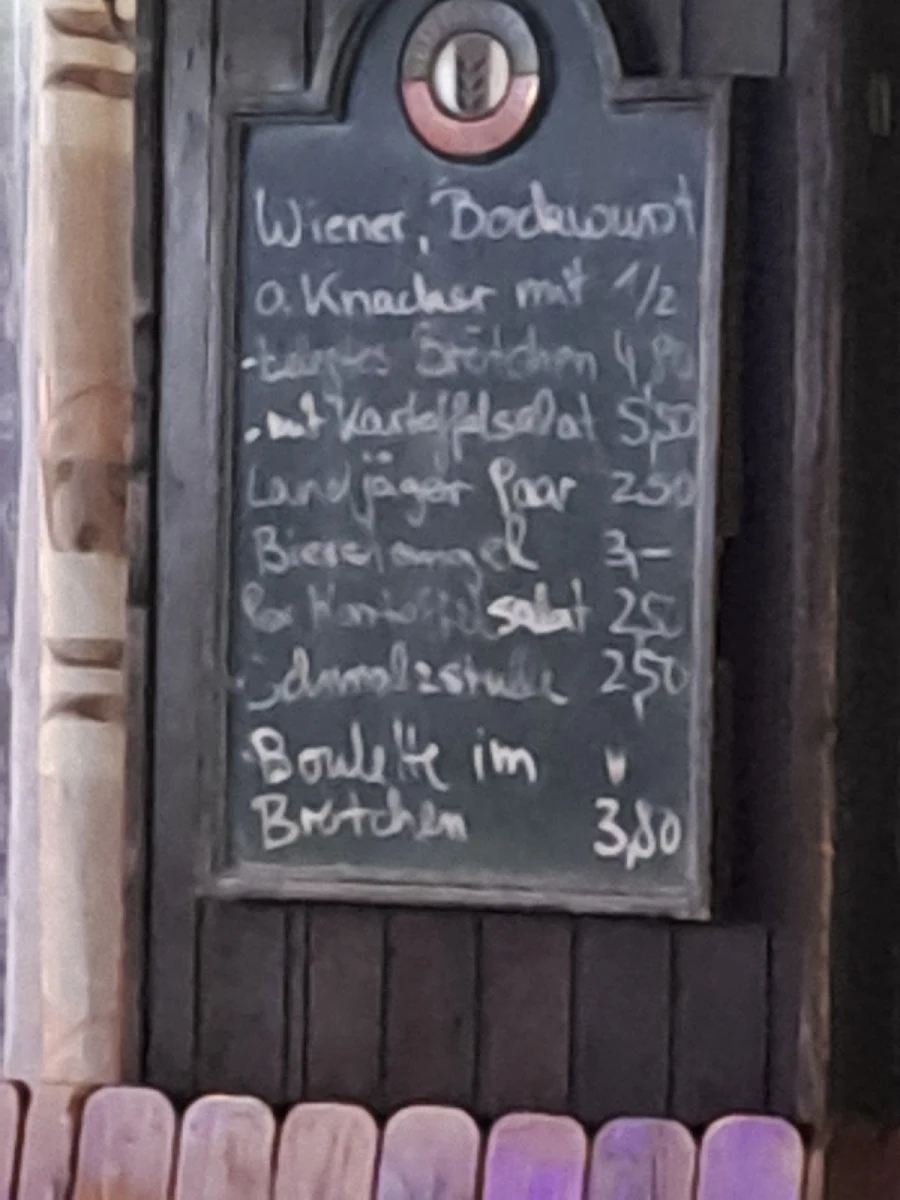 Wiener, Bockwurst
o. Knacker mit 1/2
Brötchen 4,80
- mit Kartoffelsalat 5,50
Landjäger Paar 250
3,-
Por Kartoffelsalat 25
Schmalzstulle 2,50
Boulette im
Brötchen 3,80